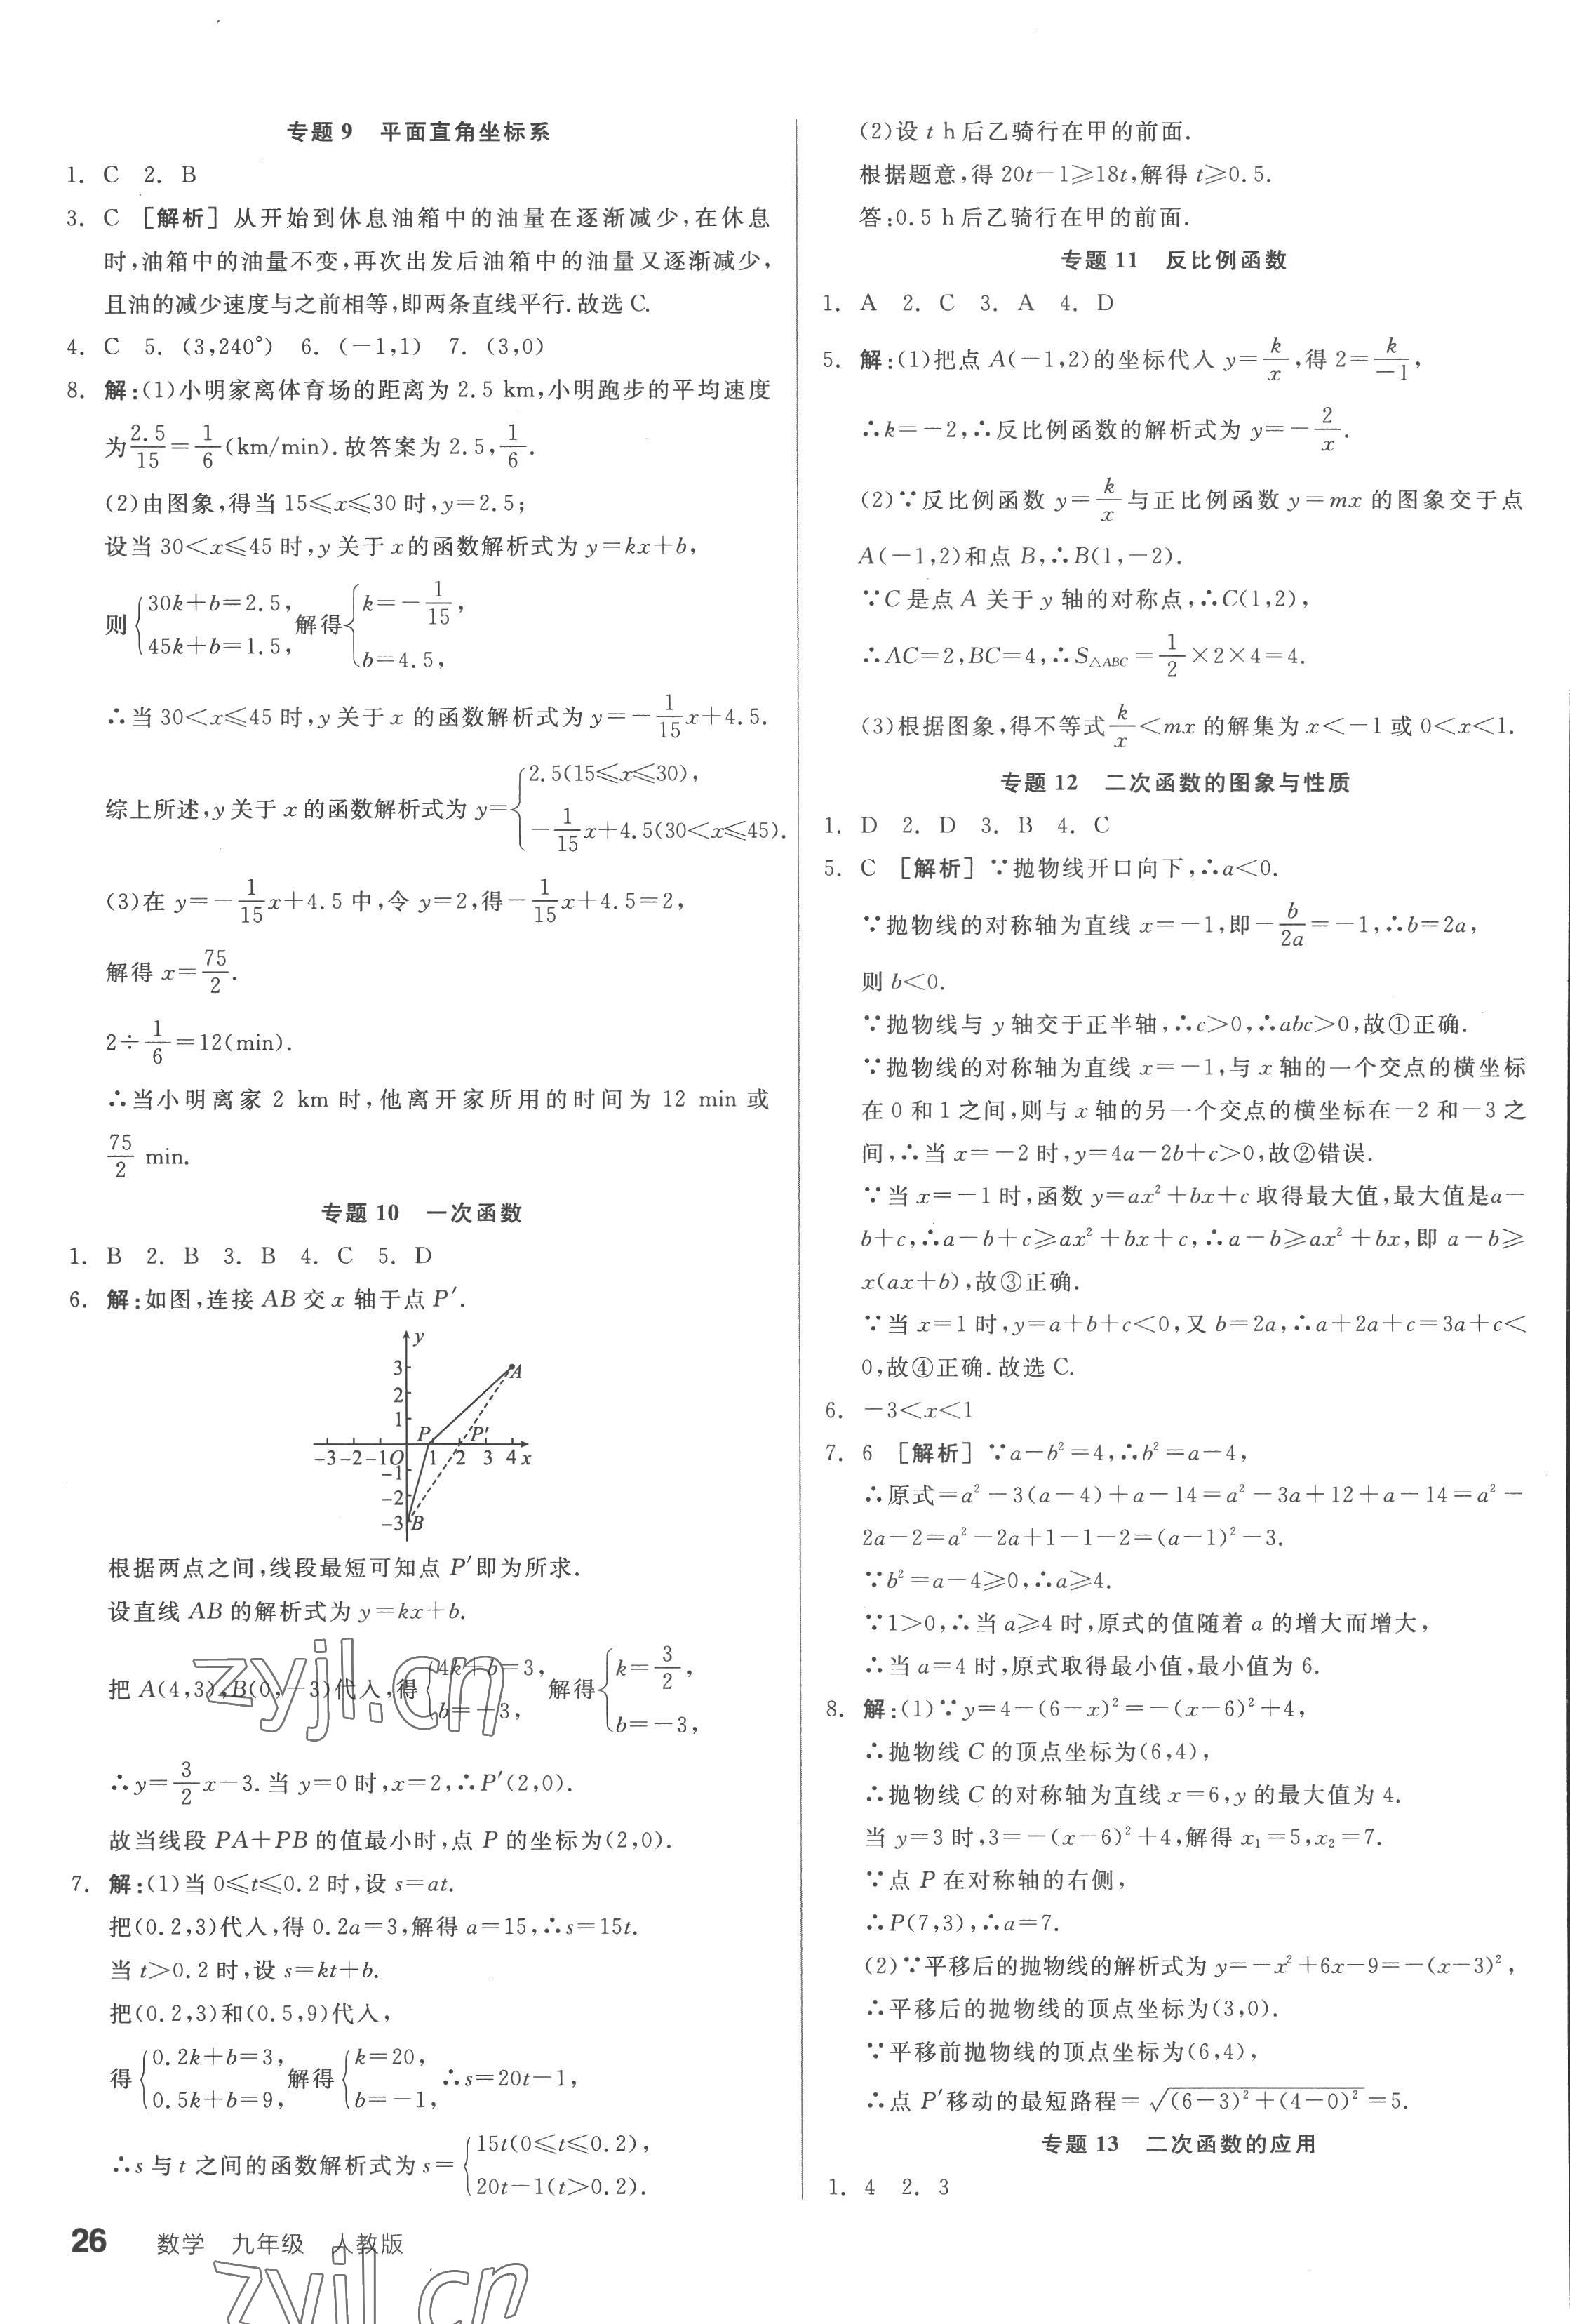 专题 9　平面直角坐标系
1. C　2. B
3. C ［解析］从开始到休息油箱中的油量在逐渐减少,在休息
时,油箱中的油量不变,再次出发后油箱中的油量又逐渐减少,
且油的减少速度与之前相等,即两条直线平行.故选 C.
4. C　5. (3,240°)　6. (-1,1)　7. (3,0)
8. 解:(1)小明家离体育场的距离为 2.5 km,小明跑步的平均速度
为2.5/15=1/6(km/min).故答案为 2.5,1/6.
(2)由图象,得当 15≤x≤30 时,y=2.5;
设当 30<x≤45 时,y 关于 x 的函数解析式为 y=kx+b,
则{30k+b=2.5, 45k+b=1.5, 解得{k=-1/15, b=4.5,
∴当 30<x≤45 时,y 关于 x 的函数解析式为 y=-1/15x+4.5.
综上所述,y 关于 x 的函数解析式为 y={2.5(15≤x≤30), -1/15x+4.5(30<x≤45).
(3)在 y=-1/15x+4.5 中,令 y=2,得-1/15x+4.5=2,
解得 x=75/2.
2÷1/6=12(min).
∴当小明离家 2 km 时,他离开家所用的时间为 12 min 或
75/2 min.
专题 10　一次函数
1. B　2. B　3. B　4. C　5. D
6. 解:如图,连接 AB 交 x 轴于点 P′.
y
3
A
2
1
P P′
-3 -2 -1 O 1 2 3 4 x
-1
-2
-3 B
根据两点之间,线段最短可知点 P′即为所求.
设直线 AB 的解析式为 y=kx+b.
把 A(4,3),B(0,-3)代入,得{4k+b=3, b=-3, 解得{k=3/2, b=-3,
zyjl.cn
∴y=3/2x-3.当 y=0 时,x=2,∴P′(2,0).
故当线段 PA+PB 的值最小时,点 P 的坐标为(2,0).
7. 解:(1)当 0≤t≤0.2 时,设 s=at.
把(0.2,3)代入,得 0.2a=3,解得 a=15,∴s=15t.
当 t>0.2 时,设 s=kt+b.
把(0.2,3)和(0.5,9)代入,
得{0.2k+b=3, 0.5k+b=9, 解得{k=20, b=-1, ∴s=20t-1,
∴s 与 t 之间的函数解析式为 s={15t(0≤t≤0.2), 20t-1(t>0.2).
(2)设 t h 后乙骑行在甲的前面.
根据题意,得 20t-1≥18t,解得 t≥0.5.
答:0.5 h 后乙骑行在甲的前面.
专题 11　反比例函数
1. A　2. C　3. A　4. D
5. 解:(1)把点 A(-1,2)的坐标代入 y=k/x,得 2=k/-1,
∴k=-2,∴反比例函数的解析式为 y=-2/x.
(2)∵反比例函数 y=k/x与正比例函数 y=mx 的图象交于点
A(-1,2)和点 B,∴B(1,-2).
∵C 是点 A 关于 y 轴的对称点,∴C(1,2),
∴AC=2,BC=4,∴S△ABC=1/2×2×4=4.
(3)根据图象,得不等式k/x<mx 的解集为 x<-1 或 0<x<1.
专题 12　二次函数的图象与性质
1. D　2. D　3. B　4. C
5. C ［解析］∵抛物线开口向下,∴a<0.
∵抛物线的对称轴为直线 x=-1,即-b/2a=-1,∴b=2a,
则 b<0.
∵抛物线与 y 轴交于正半轴,∴c>0,∴abc>0,故①正确.
∵抛物线的对称轴为直线 x=-1,与 x 轴的一个交点的横坐标
在 0 和 1 之间,则与 x 轴的另一个交点的横坐标在-2 和-3 之
间,∴当 x=-2 时,y=4a-2b+c>0,故②错误.
∵当 x=-1 时,函数 y=ax²+bx+c 取得最大值,最大值是a-
b+c,∴a-b+c≥ax²+bx+c,∴a-b≥ax²+bx,即 a-b≥
x(ax+b),故③正确.
∵当 x=1 时,y=a+b+c<0,又 b=2a,∴a+2a+c=3a+c<
0,故④正确.故选 C.
6. -3<x<1
7. 6 ［解析］∵a-b²=4,∴b²=a-4,
∴原式=a²-3(a-4)+a-14=a²-3a+12+a-14=a²-
2a-2=a²-2a+1-1-2=(a-1)²-3.
∵b²=a-4≥0,∴a≥4.
∵1>0,∴当 a≥4 时,原式的值随着 a 的增大而增大,
∴当 a=4 时,原式取得最小值,最小值为 6.
8. 解:(1)∵y=4-(6-x)²=-(x-6)²+4,
∴抛物线 C 的顶点坐标为(6,4),
∴抛物线 C 的对称轴为直线 x=6,y 的最大值为 4.
当 y=3 时,3=-(x-6)²+4,解得 x₁=5,x₂=7.
∵点 P 在对称轴的右侧,
∴P(7,3),∴a=7.
(2)∵平移后的抛物线的解析式为 y=-x²+6x-9=-(x-3)²,
∴平移后的抛物线的顶点坐标为(3,0).
∵平移前抛物线的顶点坐标为(6,4),
∴点 P′移动的最短路程=√(6-3)²+(4-0)²=5.
专题 13　二次函数的应用
1. 4　2. 3
26　数学　九年级　人教版
zyjl.cn